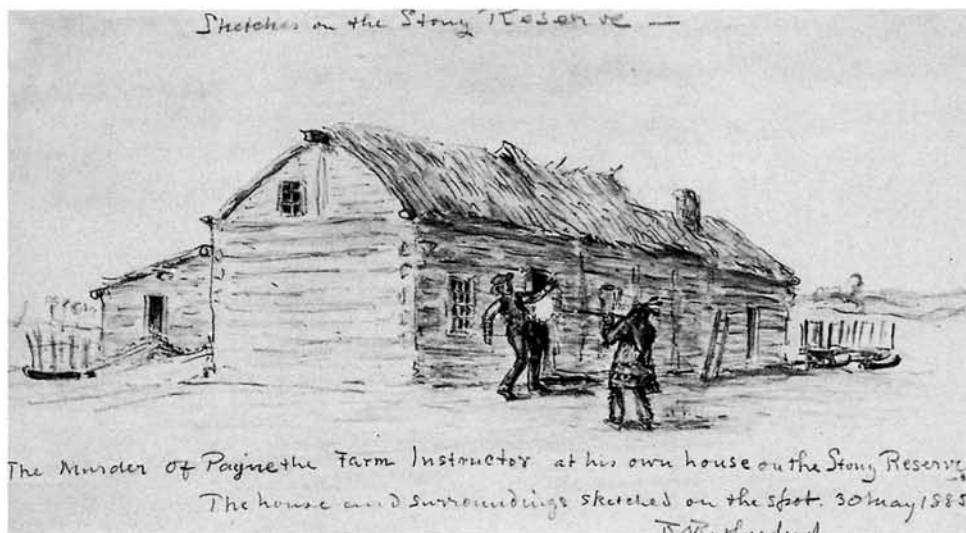 Sketches on the Stony Reserve —
The Murder of Payne the Farm Instructor at his own house on the Stony Reserve
The house and surroundings sketched on the spot. 30 May 1885